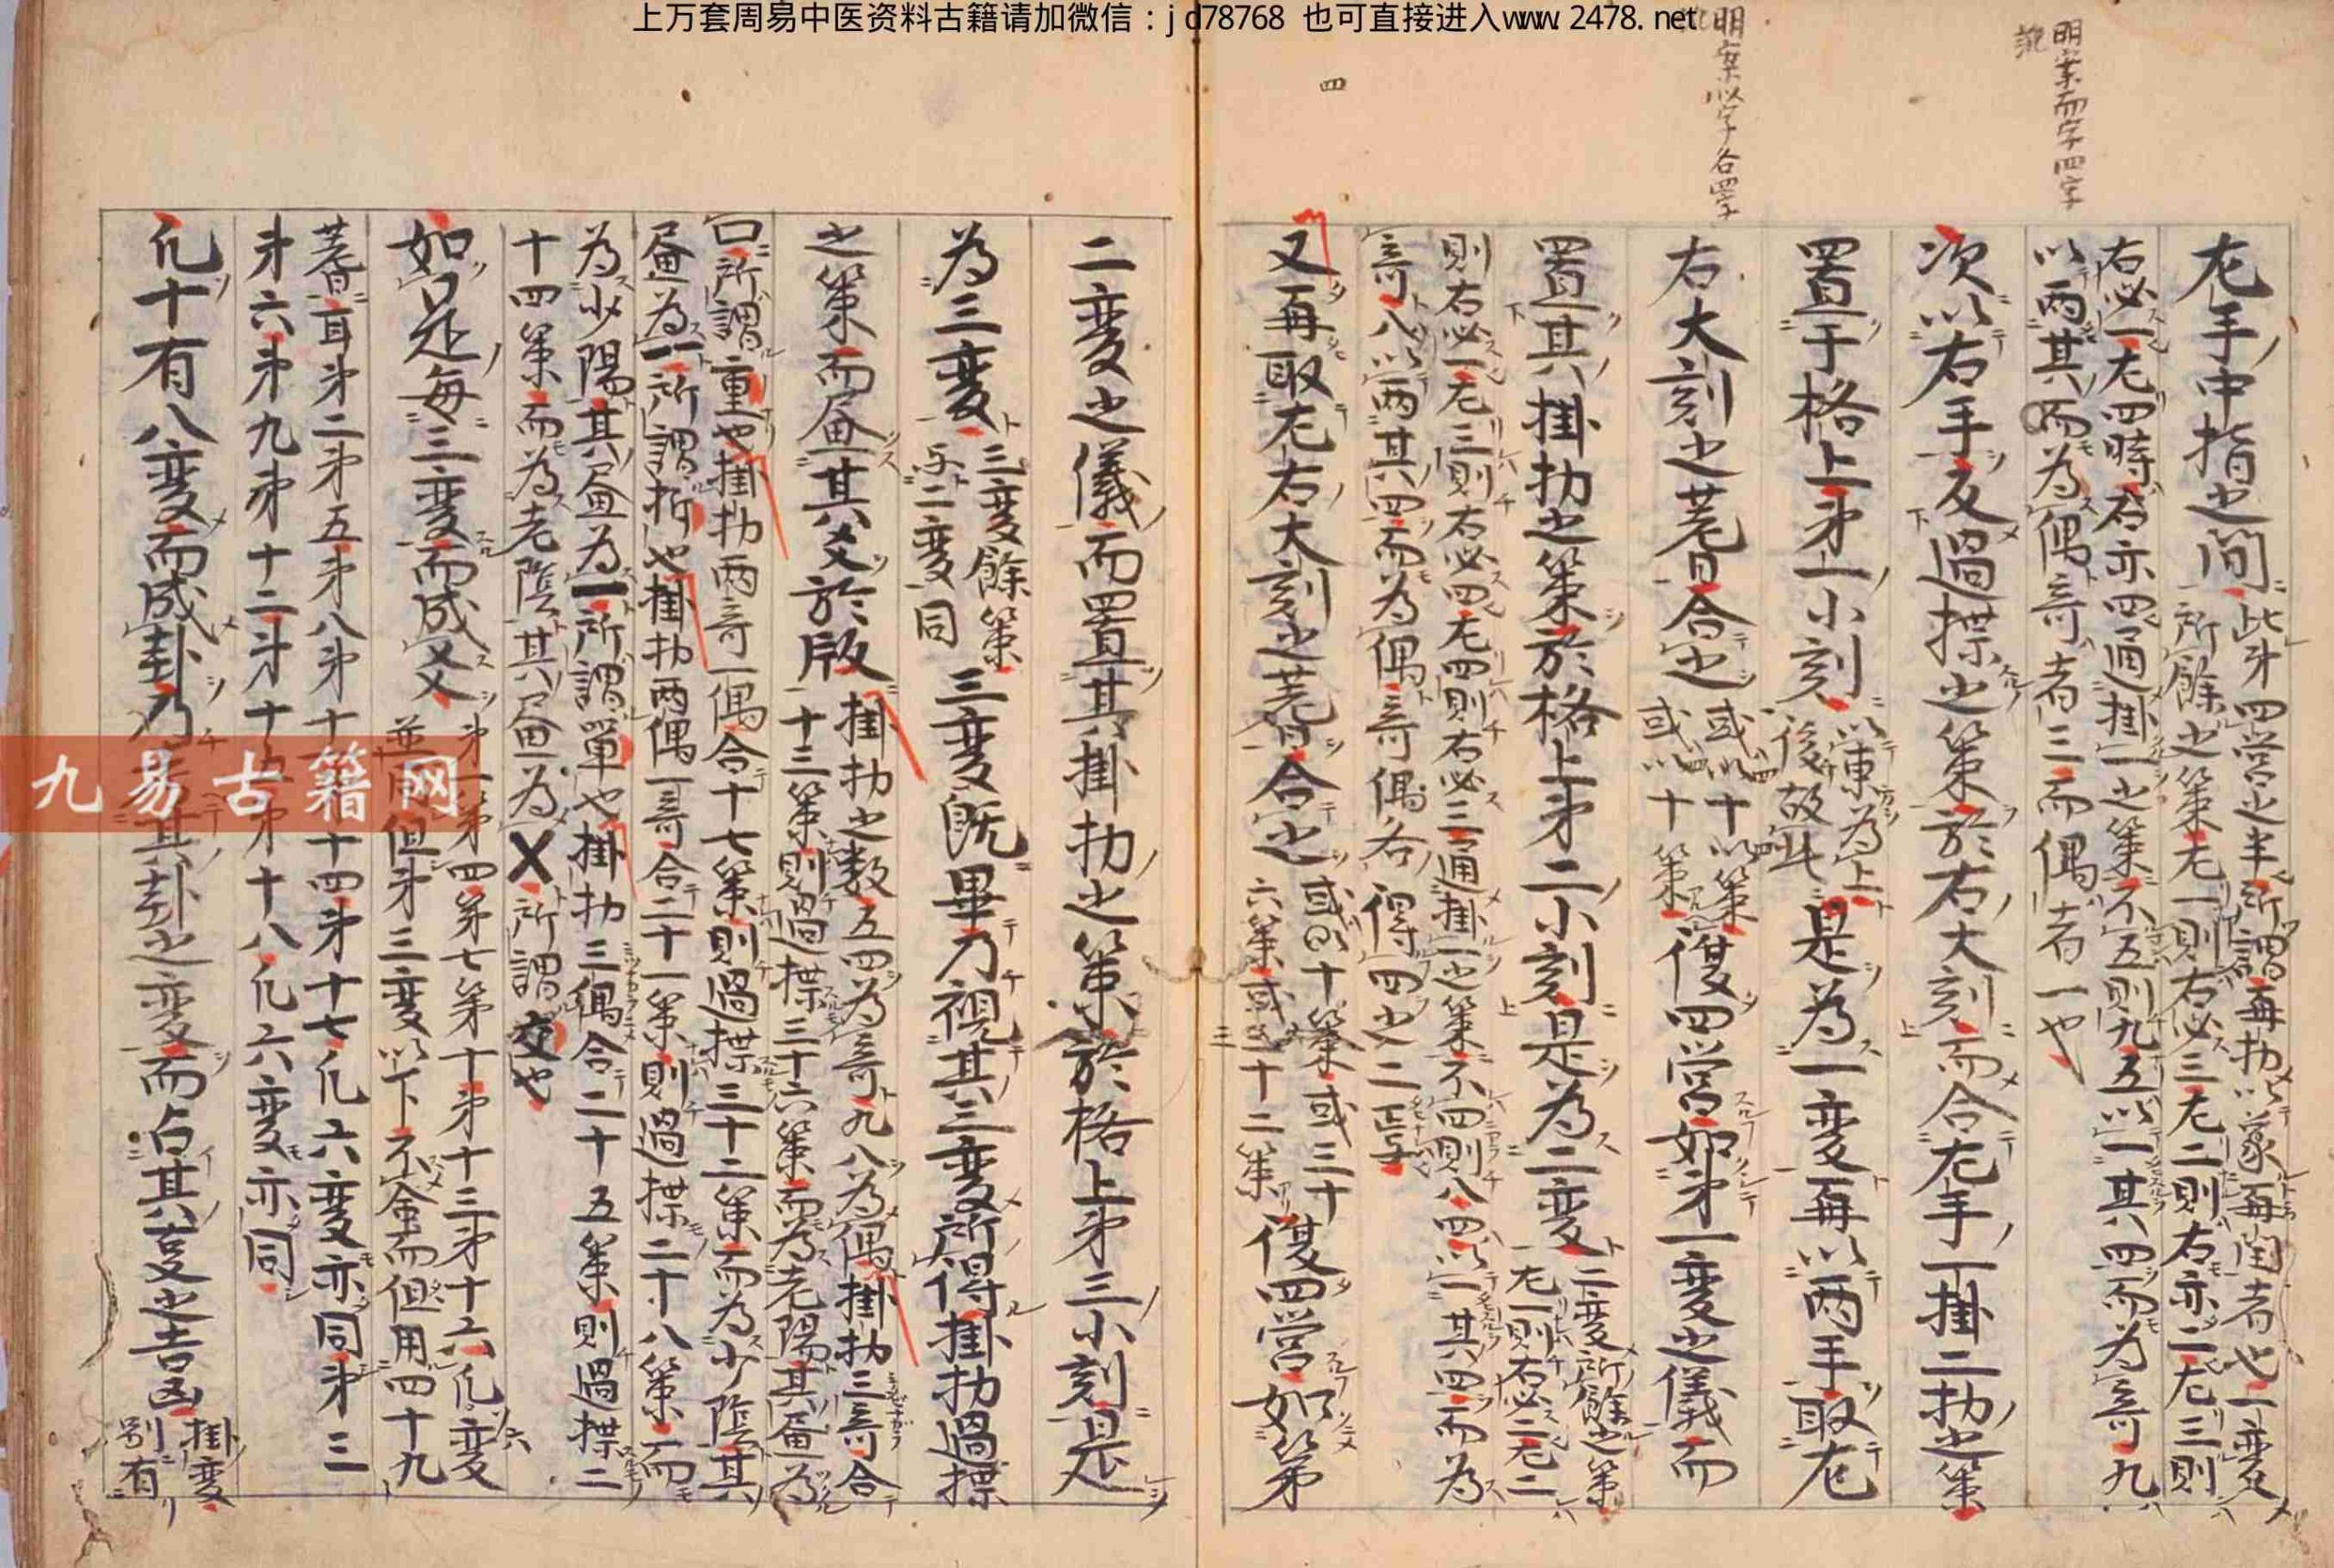 上万套周易中医资料古籍请加微信：jd78768 也可直接进入www.2478.net
左手中指之間
此第四營之半所謂再扐以象再閏者也一變
所餘之策左一則右必三左二則右亦二左三則
右必一左四時右亦四通掛一之策不五則九五以一其四而為奇九
以兩其而為偶奇者三而偶者一也
次以右手反過揲之策於右大刻而合左手一掛二扐之策
置于格上第一小刻
以東為上
後故此
是為一變再以兩手取左
右大刻之蓍合之
或以十策
或以十策
復四營如第一變之儀而
置其掛扐之策於格上第二小刻是為二變
二變所餘之策
左一則右必二左二
則右必一左三則右必四左四則右必三通掛一之策不四則八四以一其四而為
奇八以兩其四而為偶奇偶各得四之二焉
又再取左右大刻之蓍合之
或以十策或三十
六策或三十二策
復四營如第
二變之儀而置其掛扐之策於格上第三小刻是
為三變
三變餘策
与二變同
三變既畢乃視其三變所得掛扐過揲
之策而畫其爻於版
掛扐之數五四為奇九八為偶掛扐三奇合
十三策則過揲三十六策而為老陽其畫為
口所謂重也掛扐兩奇一偶合十七策則過揲三十二策而為少陰其
畫為一所謂拆也掛扐兩偶一奇合二十一策則過揲二十八策而
為少陽其畫為一所謂單也掛扐三偶合二十五策則過揲二
十四策而為老陰其畫為X所謂交也
如是每三變而成爻
第一第四第七第十第十三第十六凡六變
並同但第三變以下不命而但用四十九
蓍耳第二第五第八第十一第十四第十七凡六變亦同第三
第六第九第十二第十五第十八凡六變亦同
凡十有八變而成卦乃考其卦之變而占其事之吉凶
掛變
別有
明案而字四字
明案以字合字
四
九易古籍网